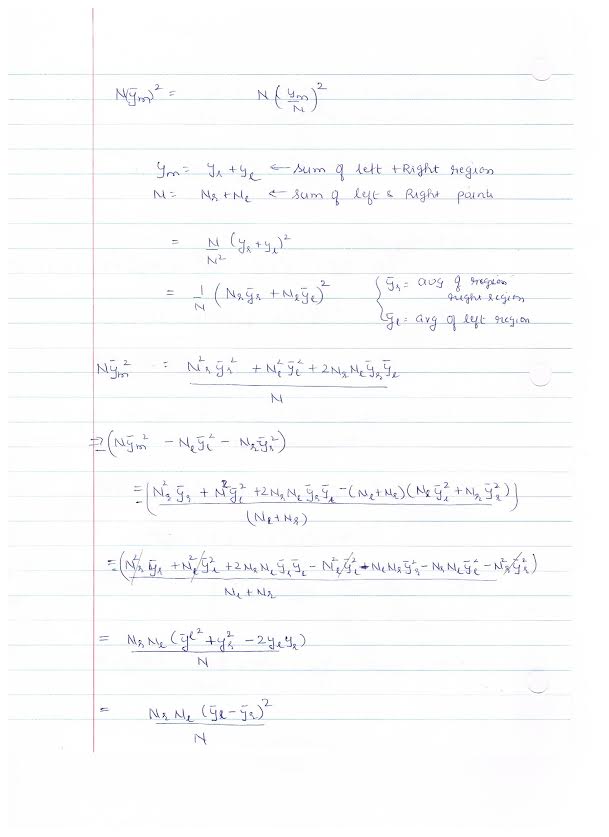 N(ȳm)² = N (ym/N)²
ym = yr + yl ← sum of left + Right region
N = Nr + Nl ← sum of left & Right points
= N/N² (yr + yl)²
= 1/N (Nr ȳr + Nl ȳl)² { ȳr = avg of region
right region
ȳl = avg of left region
Nȳm² = (Nr² ȳr² + Nl² ȳl² + 2Nr Nl ȳr ȳl) / N
⇒ -(Nȳm² - Nl ȳl² - Nr ȳr²)
= -(Nr² ȳr + Nl² ȳl² + 2Nr Nl ȳr ȳl - (Nl + Nr)(Nl ȳl² + Nr ȳr²)) / (Nl + Nr)
= -(Nr² ȳr + Nl² ȳl² + 2Nr Nl ȳr ȳl - Nl² ȳl² - Nl Nr ȳr² - Nr Nl ȳl² - Nr² ȳr²) / Nl + Nr
= Nr Nl (ȳl² + yr² - 2yl yr) / N
= Nr Nl (ȳl - ȳr)² / N